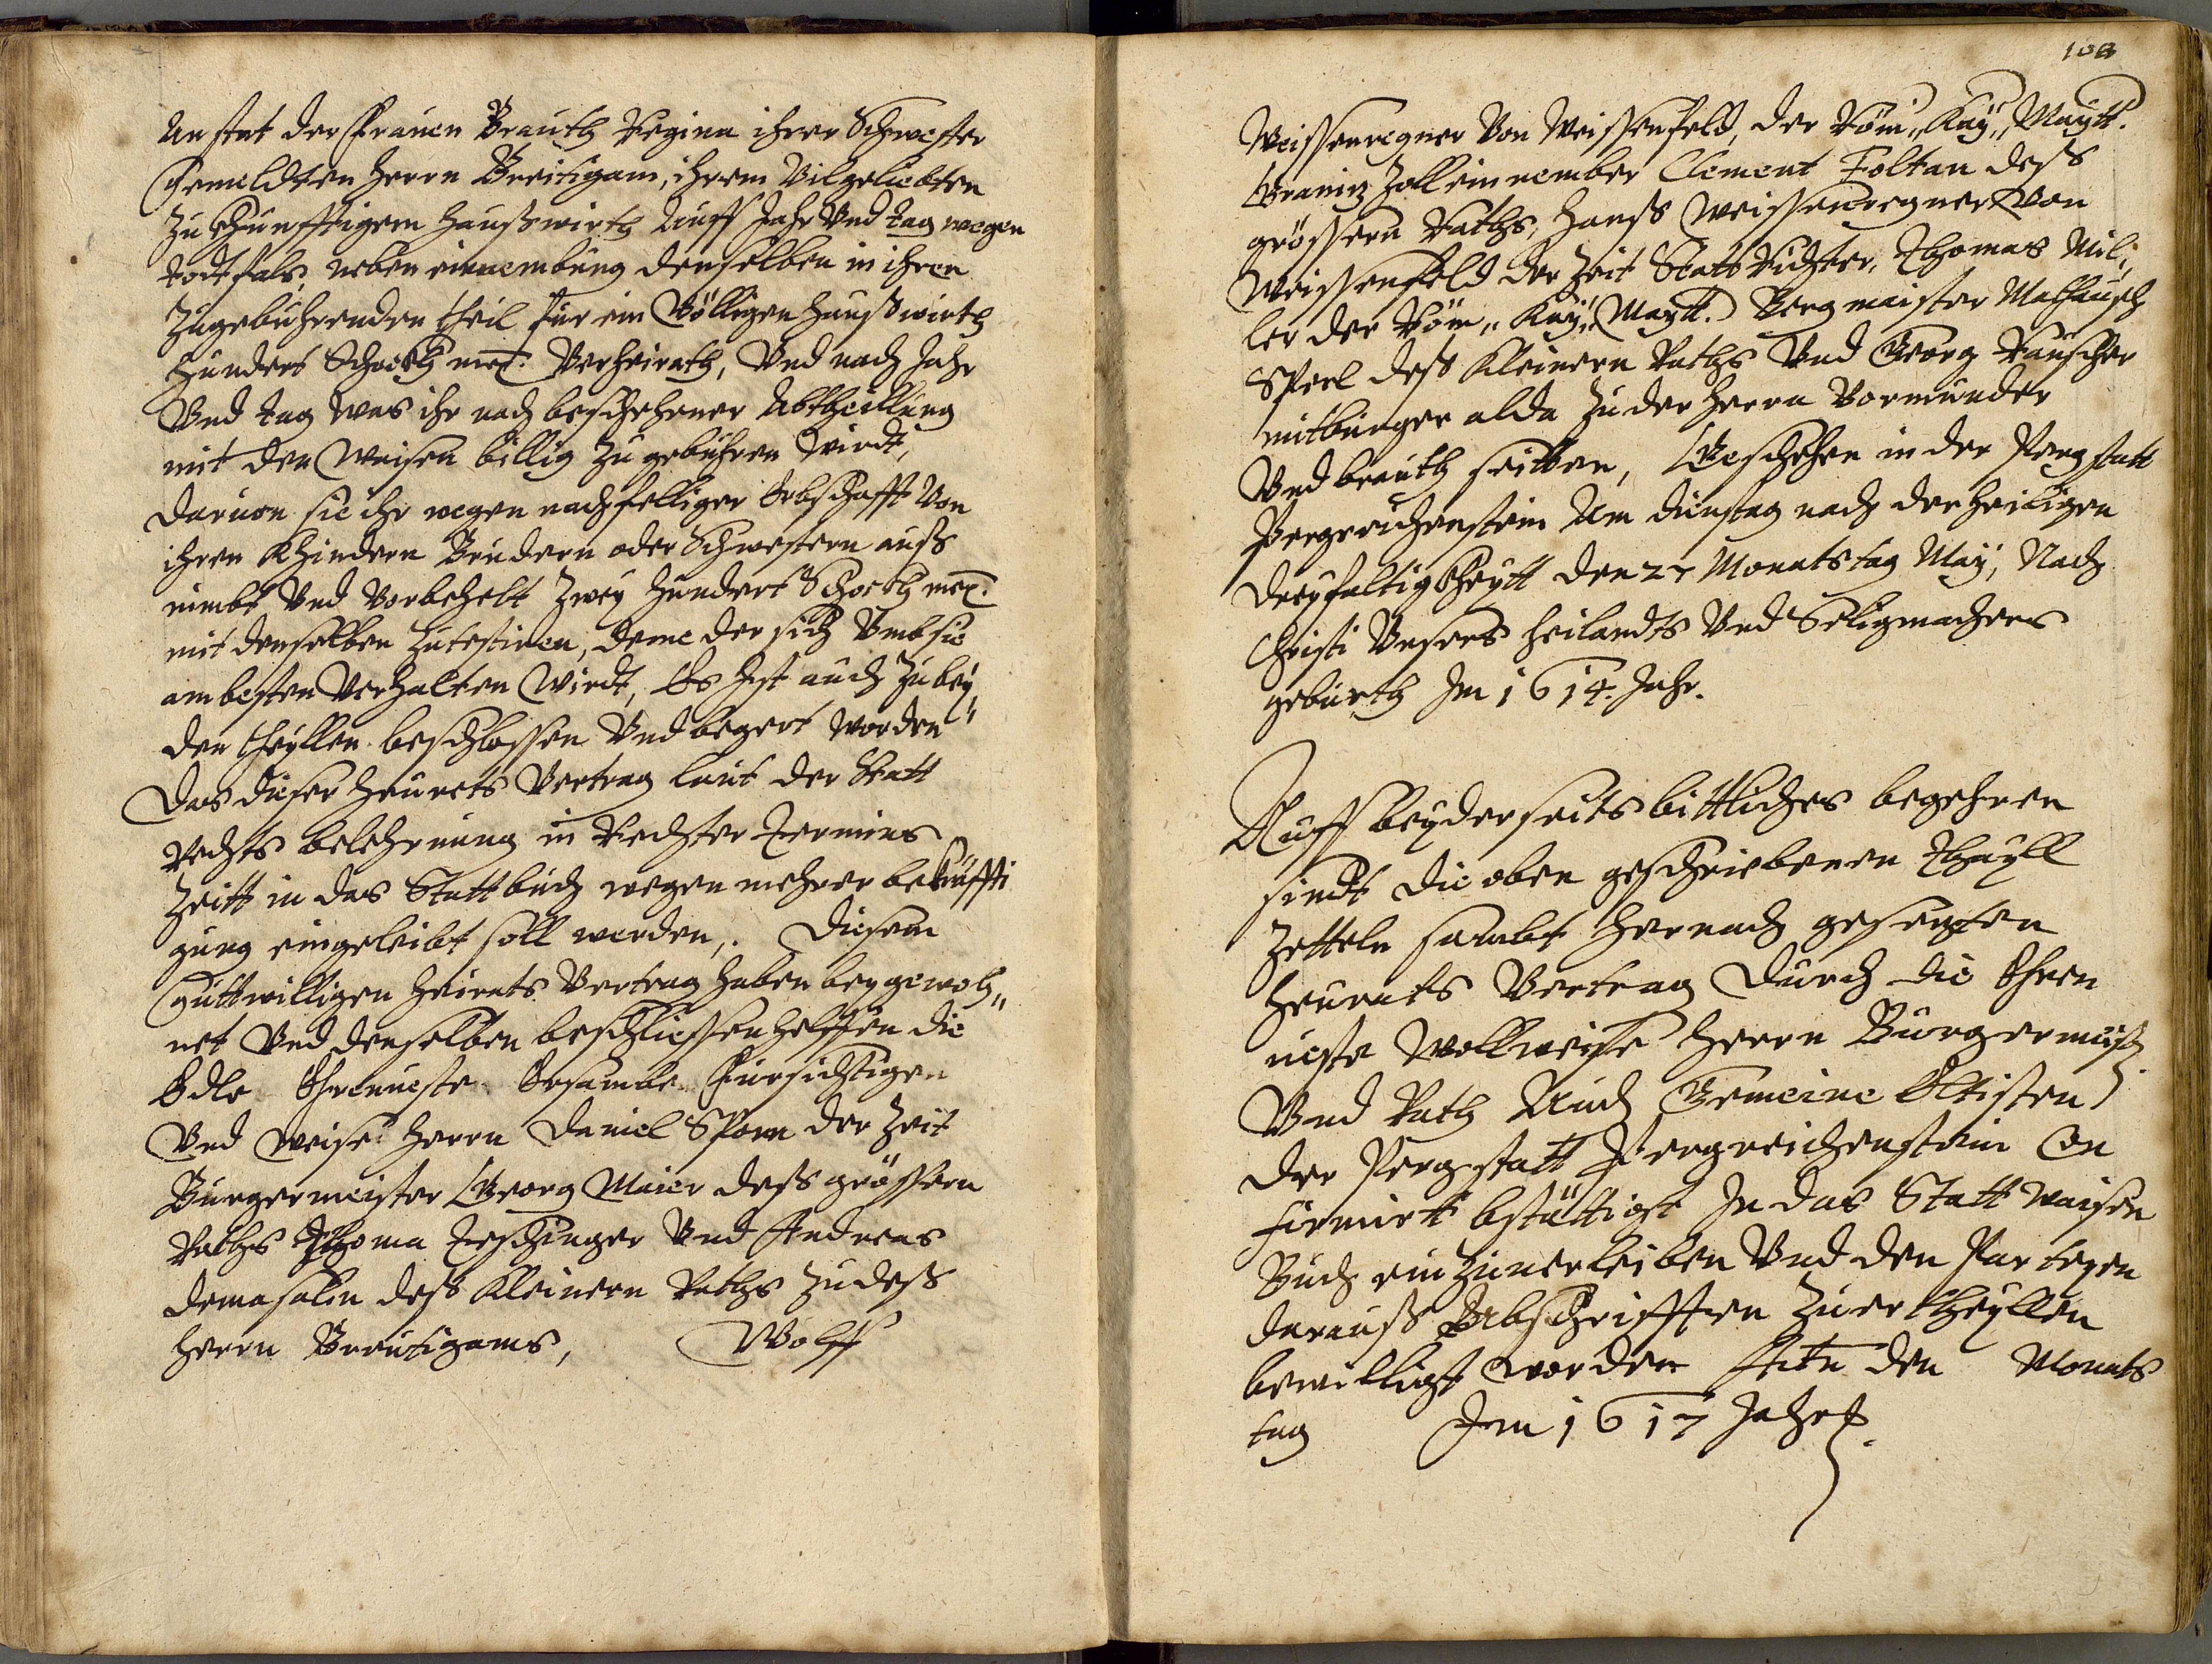 Anstat der Frauen Brauth Regina ihrer Schwester
Gemeldten Herrn Breitigam, ihrem Vilgeliebten
zu khunfftigem Haußwirth Auff Jahr Vnd tag wegen
todtfals, neben einnembung denselben in ihren
zugebuhrenden theil für ein Völligen Haußwirth
Hundert Schockh meiß. Verheirath, Vnd nach Jahr
Vnd tag was ihr nach beschehener Abtheillung
mit den Waisen billig zu gebühren wirdt,
daruon sie ihr wegen nachfelliger Erbschafft Von
ihren Khindern Brüdern oder Schwestern auß
nimbt Vnd Vorbehelt Zwey Hundert Schockh meiß.
mit denselben zutestiren, deme der sich Vmb sie
am besten Verhalten wirdt, Es ist auch zu bey
den theyllen beschlossen Vnd begert worden"
Das dieser Heurats Vertrag laut der Statt
Rechts belehrnung in Rechter Termins
Zeitt in das Stattbuch wegen mehrer bekräffti
gung eingeleibt soll werden,. Diesem
Guttwilligen Heirats Vertrag haben beygewoh„
net Vnd denselben beschliessen helffen die
Edle Ehrnueste Ersambe Fürsichtigen
Vnd weise Herrn Daniel Sporn der Zeit
Burgermeister Georg Maier deß grössern
Raths Thoma Teschinger Vnd Andreas
Demasalin deß Kleinern Raths zu deß
Herrn Breutigams, Wolff
108
Weissenregner Von Weissenfeld, der Röm„ Kay„ Maytt.
Granitz Zolleinnember Clement Foltan deß
grössern Raths, Hanß Weissenregner Von
Weissenfeld der Zeit Statt Richter, Thomas Mil„
ler der Röm„ Kay„ Maytt. Bergmaister Mathausch
Sperl deß Kleinern Raths Vnd Georg Rauscher
mitburger alda zu der Herrn Vormunder
Vnd brauth seitten, Geschehen in der Pergstatt
Pergreichenstein Am dinstag nach der heiligen
Dreyfaltigkheytt den 27 Monatstag May, Nach
Christi Vnsers Heilandts Vnd Seligmachers
geburth Im 1614. Jahr.
Auff beyderseits bittliches begehren
sindt die oben geschriebenen Thayll
Zetteln sambt hernach gesezten
Heurats Vertrag durch die Ehrn
ueste Wollweise Herrn Burgermaist
Vnd Rath Auch Gemeine Eltisten
der Pergstatt Pergreichenstein Con
firmirt bstättigt In das Statt waisen
Buch einzuuerleiben Vnd den Parteyen
darauß Abschrifften zuertheyllen
bewilligt worden Actu den Monats
tag Im 1617 Jahr